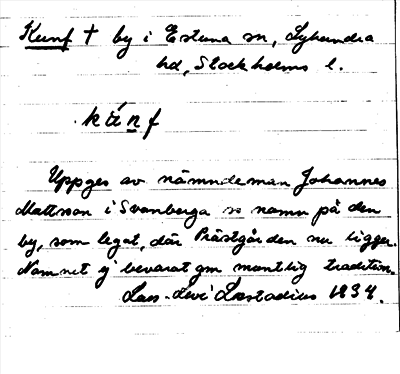 Kunf † by i Estuna sn, Lyhundra
hd, Stockholms l.
kúnf
Uppges av nämndeman Johannes
Mattsson i Svanberga ss namn på den
by, som legat, där Prästgården nu ligger.
Namnet ej bevarat gm muntlig tradition.
Lars-Levi Læstadius 1934.